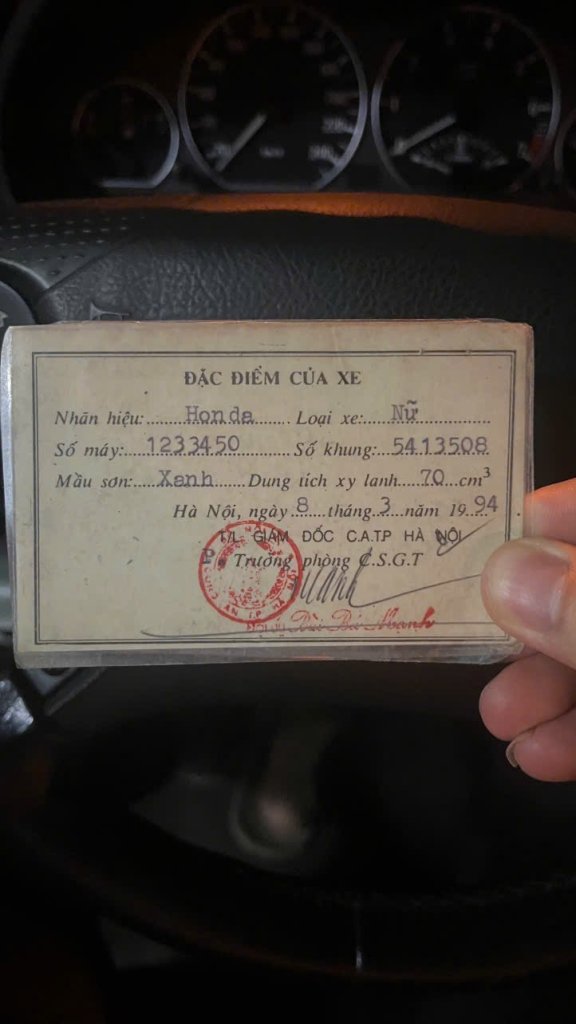 ĐẶC ĐIỂM CỦA XE
Nhãn hiệu: Honda Loại xe: Nữ
Số máy: 1233450 Số khung: 5413508
Mầu sơn: Xanh Dung tích xy lanh 70 cm³
Hà Nội, ngày 8 tháng 3 năm 1994
T/L GIÁM ĐỐC C.A.TP HÀ NỘI
Trưởng phòng C.S.G.T